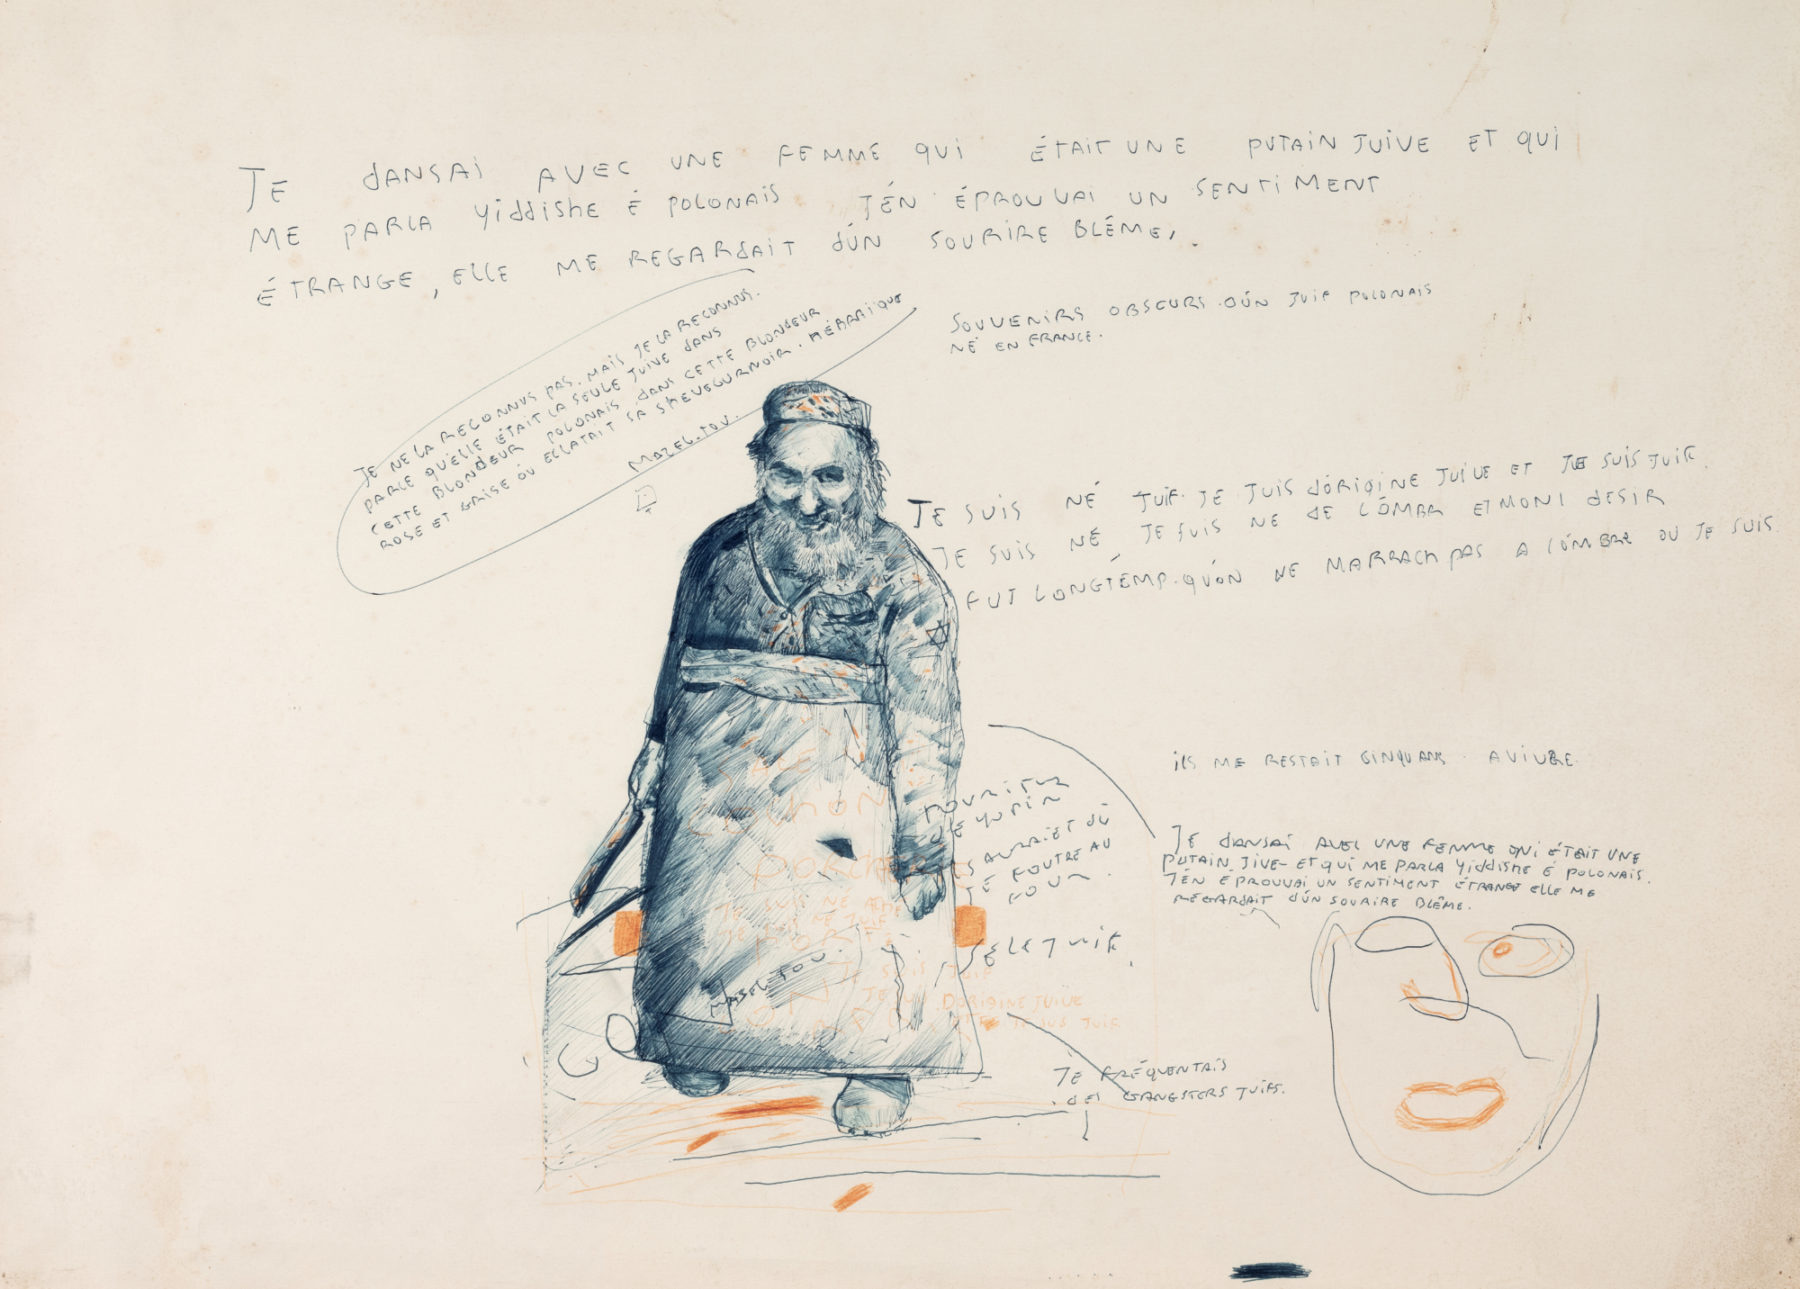 JE dANSAi AVEC UNE FEMME QUI ÉTAIT UNE PUTAIN JUIVE ET QUI
ME PARLA YiddiSHE É POLONAiS JÉN ÉPROUVAI UN SENTiMENT
ÉTRANGE, ELLE ME REGARdAIT dÚN SOURIRE BLÉME,.
JE NE LA RECONNUS PAS. MAiS JE LA RECONNUS.
PARCE QU'ELLE ÉTAIT LA SEULE JUIVE dANS
CETTE BLONdEUR POLONAIS dANS CETTE BLONdEUR
ROSE ET GRISE OÙ ECLATAIT SA
MAZEL.TOV.
SOUVENIRS OBSCURS dÚN JUIF POLONAiS
NÉ EN FRANCE.
JE SUIS NÉ JUIF. JE SUIS dÓRIGINE JUIVE ET JE SUIS JUIF.
JE SUIS NÉ, JE SUIS NE dE LÓMBR ET MONI DESIR
FUT LONGTÉMP. QUÓN NE MARRACH PAS A LÓMBRE OU JE SUIS
iLS ME RESTAIT CINQUANS A VIVRE.
NOURITUR
dE YOUPIN
ILS AURAIET dÛ
TE FOUTRE AU
FOUR.
JE dANSAi AVEC UNE FEMME QUI ÉTAIT UNE
PUTAIN JIVE- ET QUI ME PARLA YiddiSHE É POLONAIS.
JÉN ÉPROUVAI UN SENTIMENT ÉTRANGE ELLE ME
REGARDAIT dÚN SOURIRE BLÊME.
COCHON
JE SUIS JUIF
MAZEL TOV.
DORIGINE JUIVE
JE FRÉQUENTAIS
dES GANGSTERS JUIFS.